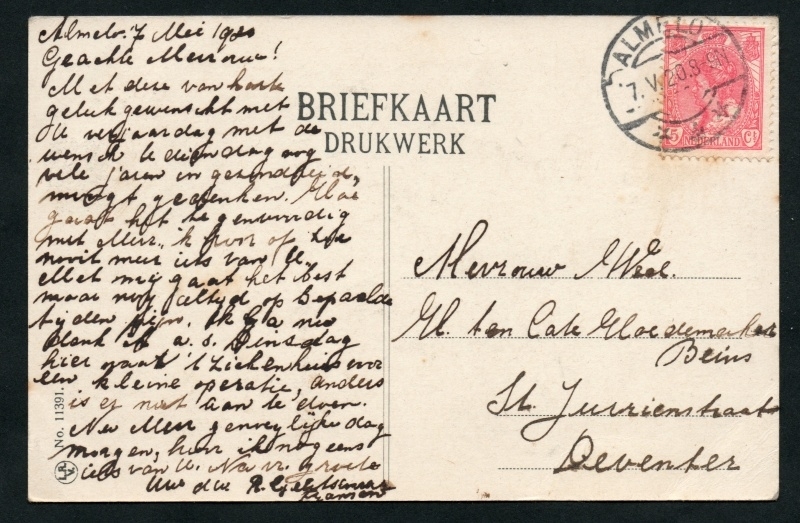 Almelo. 7 Mei 1920
Geachte Mevrouw!
Met deze van harte
geluk gewenscht met
U verjaardag met de
wensch U dien dag nog
vele jaren in gezondheid,
moogt gedenken. Hoe
gaat het tegenwoordig
met Mevr., ik hoor of zie
nooit meer iets van U.
Met mij gaat het best
maar nog altijd op bepaalde
tijden pijn. Ik ga nu
denk ik a.s. Dinsdag
hier naar 't Ziekenhuis voor
een kleine operatie, anders
is er niet aan te doen.
Nu Mevr genoegelijke dag
morgen, hoor ik nog eens
iets van U. Na vr. groete
Uw dw
Jansen
BRIEFKAART
DRUKWERK
ALMELO
7.V.20.8-9N
5 NEDERLAND Ct
Mevrouw Wed.
H. ten Cate Hoedemaker
Beins
St. Jurrienstraat
Deventer
No. 11391.